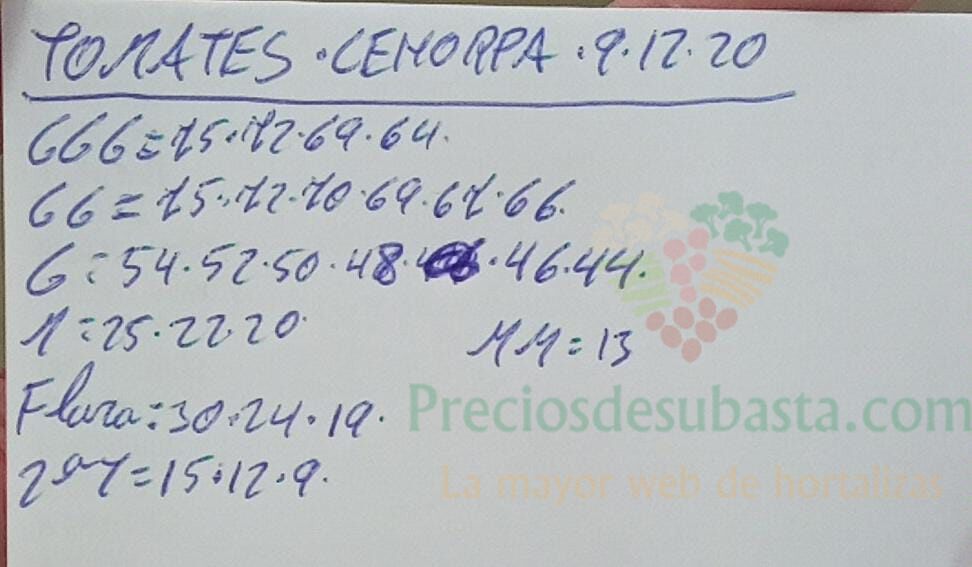 TOMATES · CEHORPA · 9·12·20
GGG = 75·72·69·64.
GG = 75·72·70·69·67·66.
G = 54·52·50·48· ·46·44.
M = 25·22·20·
MM = 13
Flora = 30·24·19.
= 15·12·9.
Preciosdesubasta.com
La mayor web de hortalizas